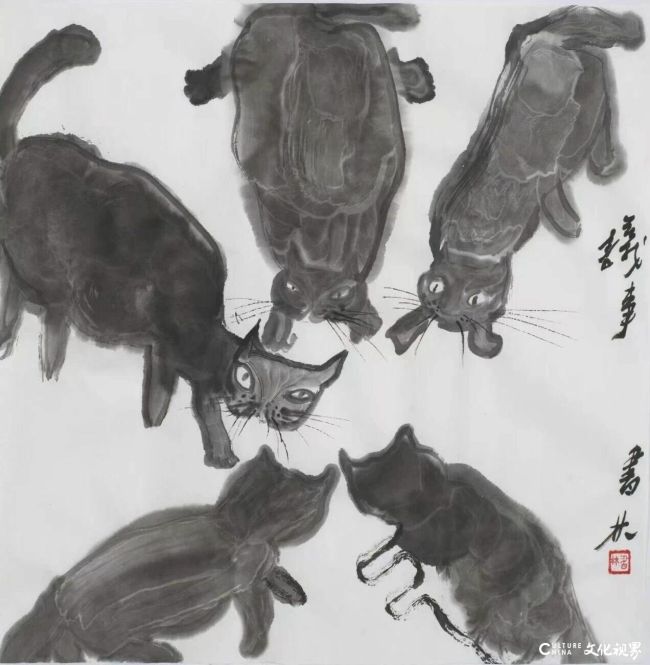 議事
書林
CULTURE
CHINA 文化视界